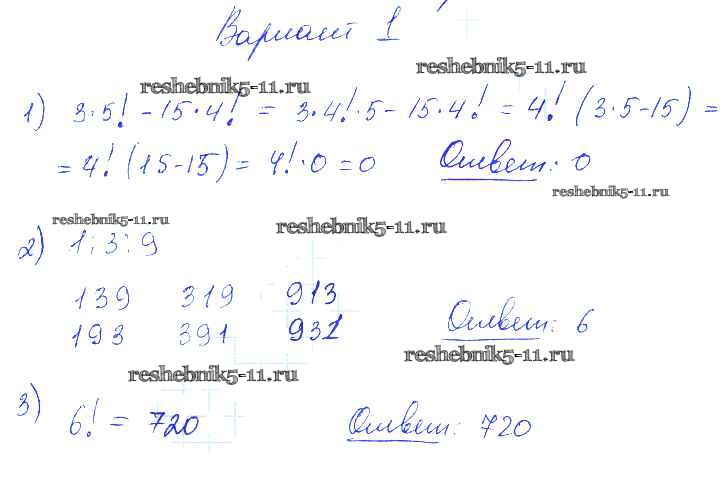 Вариант 1
reshebnik5-11.ru
reshebnik5-11.ru
1) 3·5! - 15·4! = 3·4!·5 - 15·4! = 4! (3·5-15) =
= 4! (15-15) = 4!·0 = 0 Ответ: 0
reshebnik5-11.ru
reshebnik5-11.ru
reshebnik5-11.ru
2) 1; 3; 9
139 319 913
193 391 931 Ответ: 6
reshebnik5-11.ru
reshebnik5-11.ru
3) 6! = 720 Ответ: 720